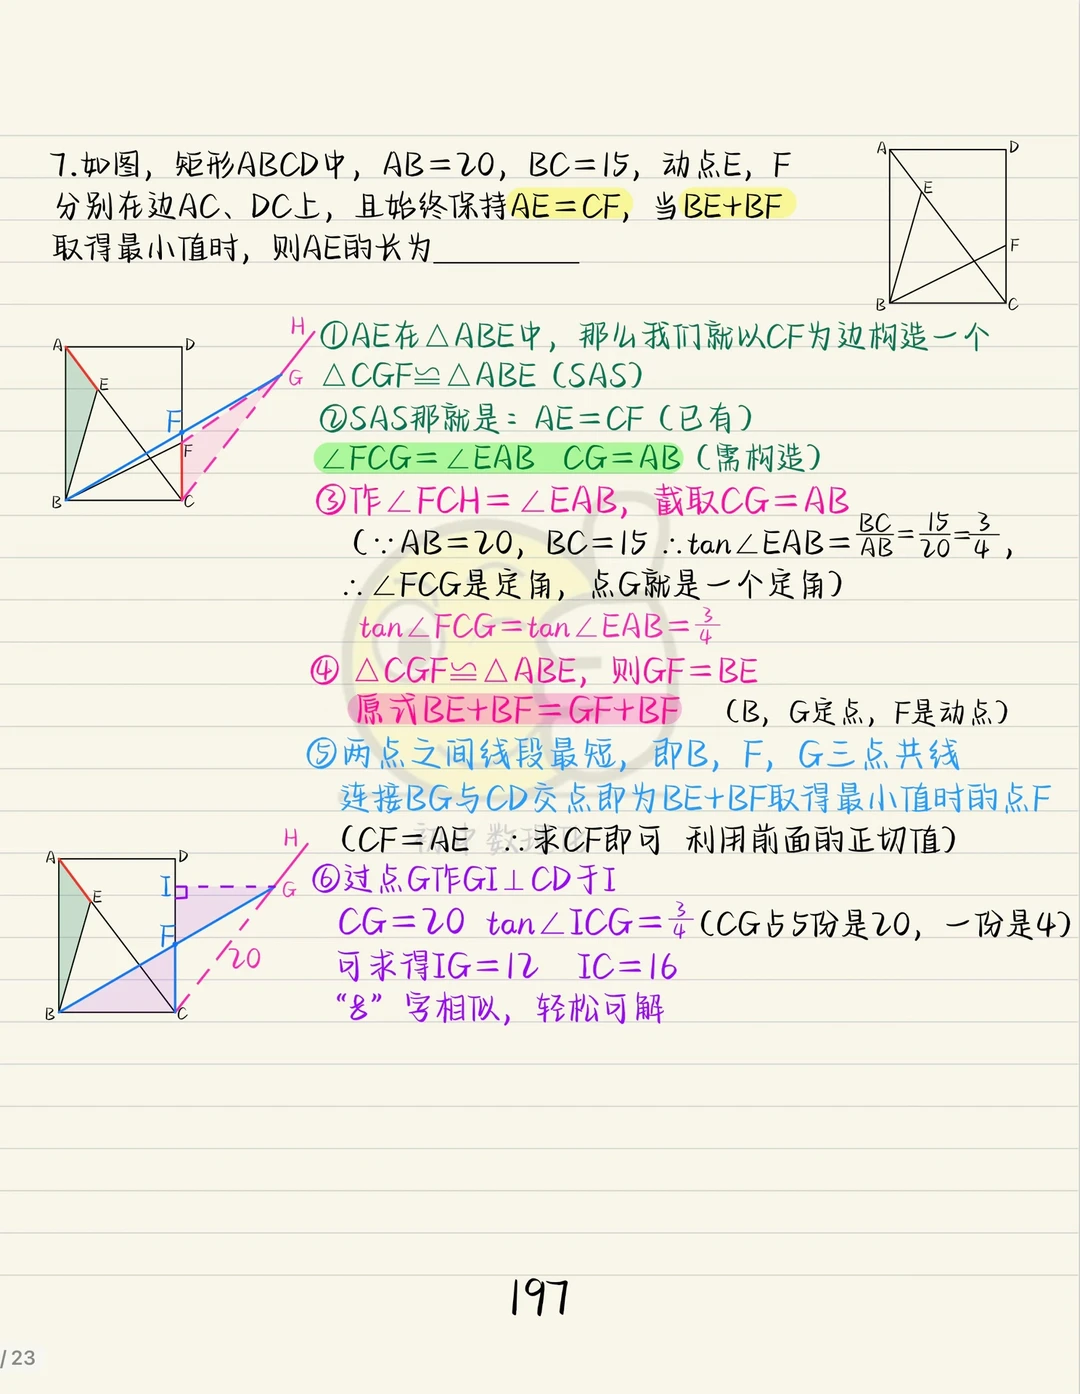 7.如图，矩形ABCD中，AB=20，BC=15，动点E，F
分别在边AC、DC上，且始终保持AE=CF，当BE+BF
取得最小值时，则AE的长为__________
A
D
E
F
B
C
A
D
E
F
F
B
C
H
G
①AE在△ABE中，那么我们就以CF为边构造一个
△CGF≌△ABE（SAS）
②SAS那就是：AE=CF（已有）
∠FCG=∠EAB CG=AB（需构造）
③作∠FCH=∠EAB，截取CG=AB
（∵AB=20，BC=15 ∴tan∠EAB=BC/AB=15/20=3/4，
∴∠FCG是定角，点G就是一个定角）
tan∠FCG=tan∠EAB=3/4
④ △CGF≌△ABE，则GF=BE
原式BE+BF=GF+BF （B，G定点，F是动点）
⑤两点之间线段最短，即B，F，G三点共线
连接BG与CD交点即为BE+BF取得最小值时的点F
（CF=AE ∴求CF即可 利用前面的正切值）
A
D
H
I
G
E
F
20
B
C
⑥过点G作GI⊥CD于I
CG=20 tan∠ICG=3/4（CG占5份是20，一份是4）
可求得IG=12 IC=16
“8”字相似，轻松可解
初中数理化
197
/ 23